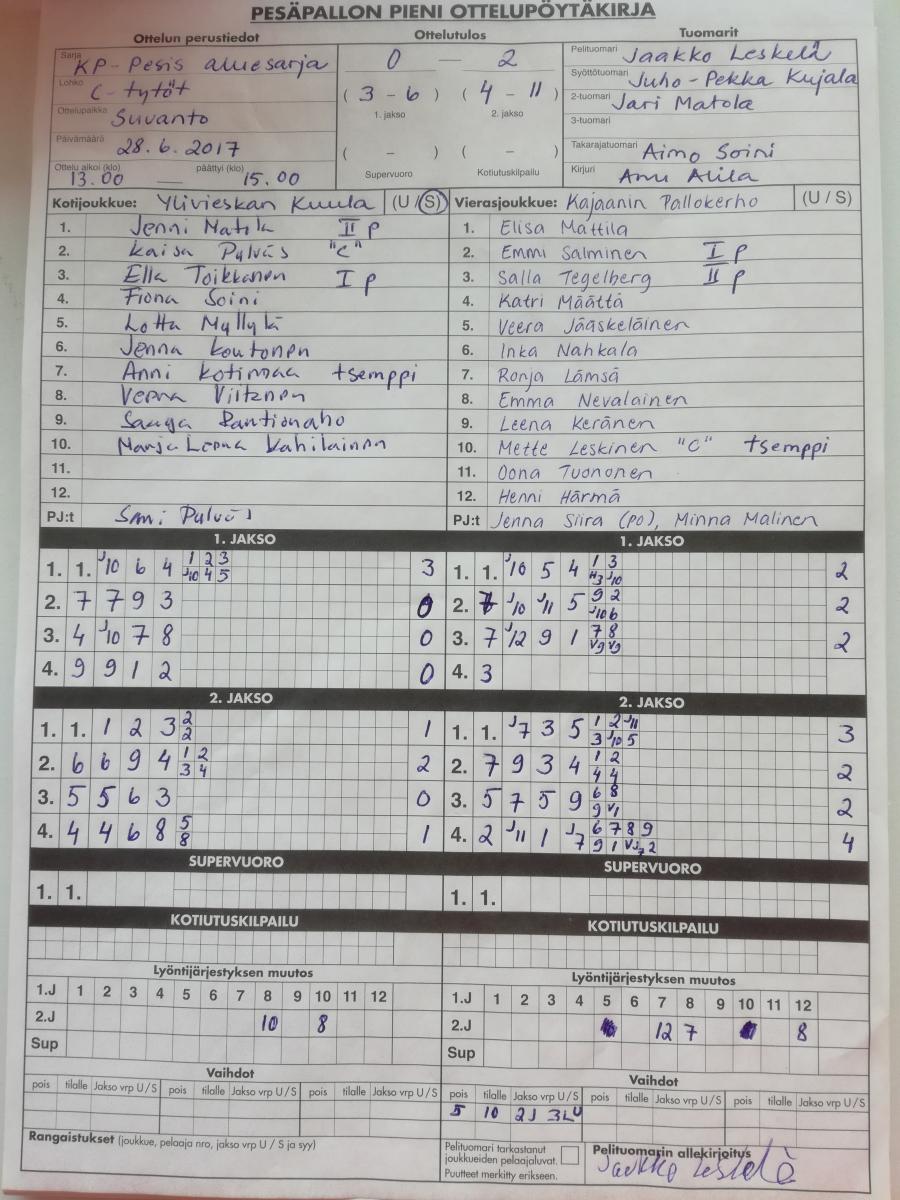 PESÄPALLON PIENI OTTELUPÖYTÄKIRJA
Ottelun perustiedot
Sarja KP-Pesis aluesarja
Lohko C-tytöt
Ottelupaikka Suvanto
Päivämäärä 28.6.2017
Ottelu alkoi (klo) päättyi (klo)
13.00 — 15.00
Ottelutulos
0 — 2
( 3 - 6 ) ( 4 - 11 )
1. jakso 2. jakso
( - ) ( - )
Supervuoro Kotiutuskilpailu
Tuomarit
Pelituomari Jaakko Leskelä
Syöttötuomari Juho-Pekka Kujala
2-tuomari Jari Matola
3-tuomari
Takarajatuomari Aimo Soini
Kirjuri Anu Alila
Kotijoukkue: Ylivieskan Kuula (U / S)
1. Jenni Matila II p
2. Kaisa Pylväs "C"
3. Ella Toikkanen I p
4. Fiona Soini
5. Lotta Myllylä
6. Jenna Koutonen
7. Anni Kotimaa tsemppi
8. Veera Viitanen
9. Saaga Rantionaho
10. Marja Leena Kahilainen
11.
12.
PJ:t Sani Pylväs
Vierasjoukkue: Kajaanin Pallokerho (U / S)
1. Elisa Mattila
2. Emmi Salminen I p
3. Salla Tegelberg II p
4. Katri Määttä
5. Veera Jääskeläinen
6. Inka Nahkala
7. Ronja Lämsä
8. Emma Nevalainen
9. Leena Keränen
10. Mette Leskinen "C" tsemppi
11. Oona Tuononen
12. Henni Härmä
PJ:t Jenna Siira (PO), Minna Malinen
1. JAKSO
1. 1. J10 6 4 1 2 3 3
J10 4 5
2. 7 7 9 3 0
3. 4 J10 7 8 0
4. 9 9 1 2 0
2. JAKSO
1. 1. 1 2 3 2 1
2
2. 6 6 9 4 1 2 2
3 4
3. 5 5 6 3 0
4. 4 4 6 8 5 1
8
SUPERVUORO
1. 1.
KOTIUTUSKILPAILU
Lyöntijärjestyksen muutos
1.J 1 2 3 4 5 6 7 8 9 10 11 12
2.J 10 8
Sup
Vaihdot
pois tilalle Jakso vrp U / S pois tilalle Jakso vrp U / S pois tilalle Jakso vrp U / S
Rangaistukset (joukkue, pelaaja nro, jakso vrp U / S ja syy)
1. JAKSO
1. 1. J10 5 4 1 3 2
H3 J10
2. J10 J11 5 9 2 2
J10 6
3. 7 J12 9 1 7 8 2
V9 V9
4. 3
2. JAKSO
1. 1. J7 3 5 1 2 J11 3
3 J10 5
2. 7 9 3 4 1 2 2
4 4
3. 5 7 5 9 6 8 2
9 V1
4. 2 J11 1 J7 6 7 8 9 4
9 1 VJ7 2
SUPERVUORO
1. 1.
KOTIUTUSKILPAILU
Lyöntijärjestyksen muutos
1.J 1 2 3 4 5 6 7 8 9 10 11 12
2.J 12 7 8
Sup
Vaihdot
pois tilalle Jakso vrp U / S pois tilalle Jakso vrp U / S pois tilalle Jakso vrp U / S
5 10 2J 3LU
Pelituomari tarkastanut
joukkueiden pelaajaluvat.
Puutteet merkitty erikseen.
Pelituomarin allekirjoitus
Jaakko Leskelä